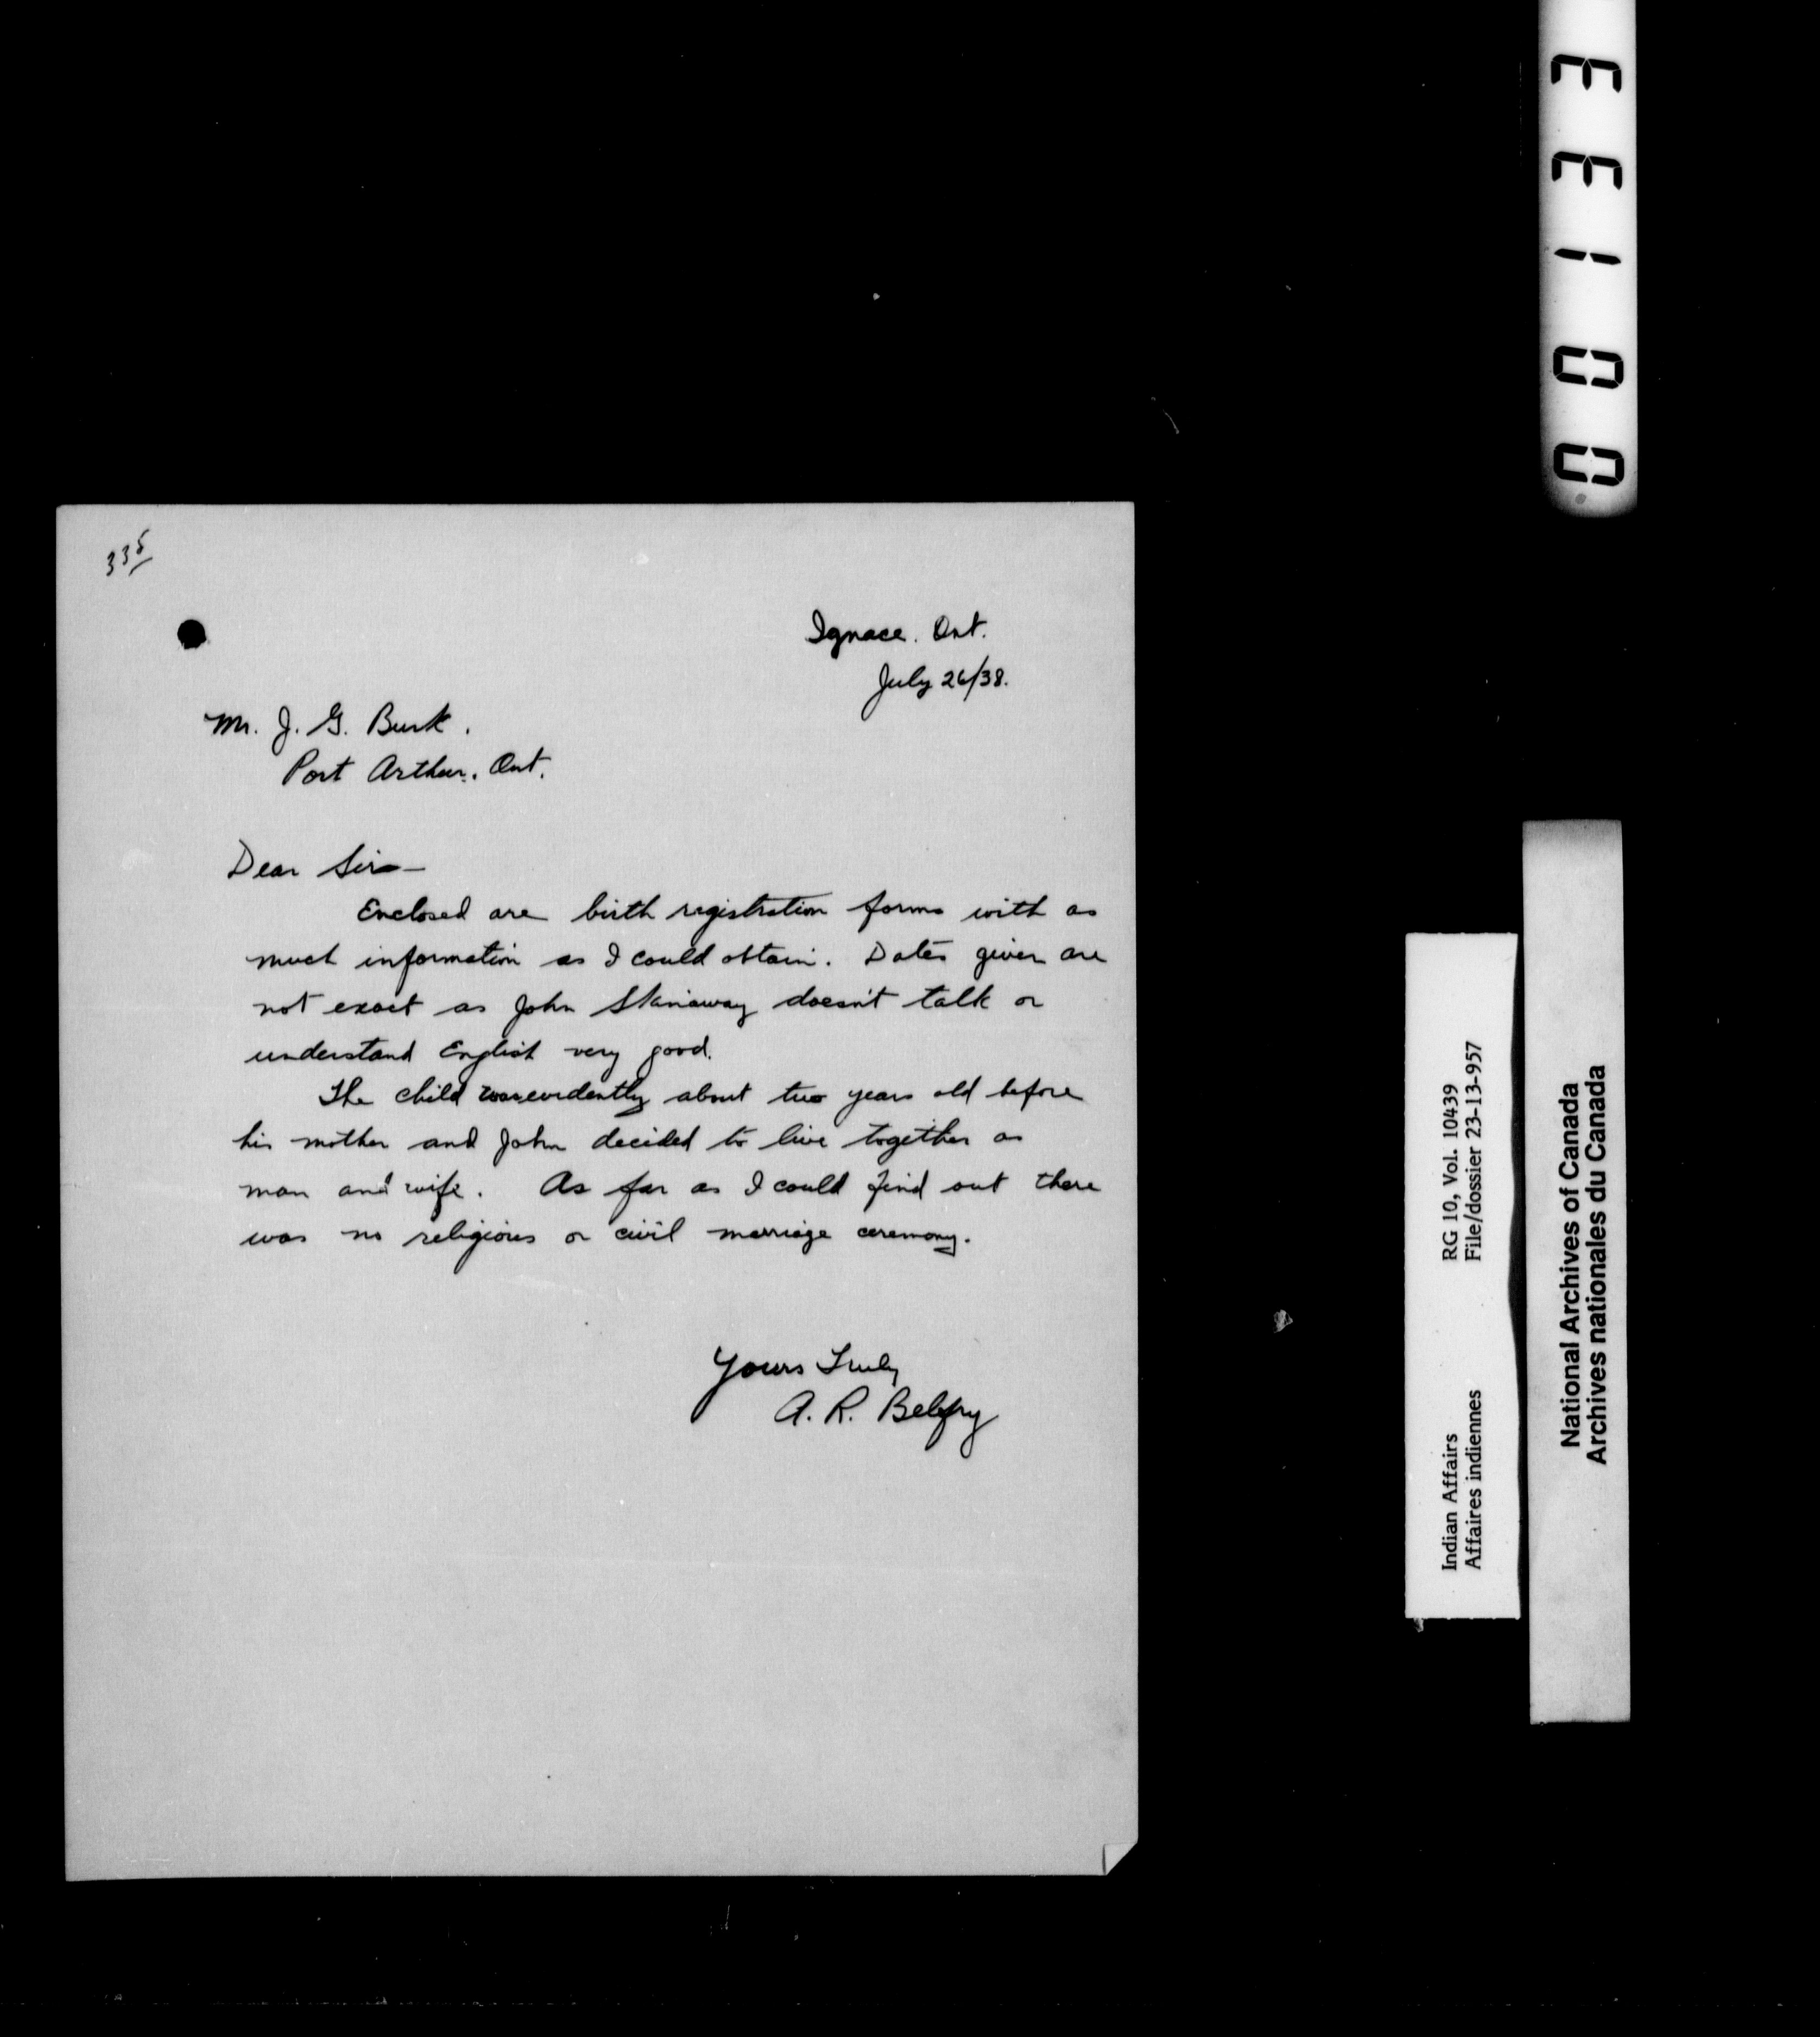 335
Ignace. Ont.
July 26/38.
Mr. J. G. Burk.
Port Arthur. Ont.
Dear Sir—
Enclosed are birth registration forms with as
much information as I could obtain. Dates given are
not exact as John Skanaway doesn't talk or
understand English very good.
The child was evidently about two years old before
his mother and John decided to live together as
man and wife. As far as I could find out there
was no religious or civil marriage ceremony.
Yours Truly
A. R. Belfry
Indian Affairs RG 10, Vol. 10439
Affaires indiennes File/dossier 23-13-957
National Archives of Canada
Archives nationales du Canada
00133